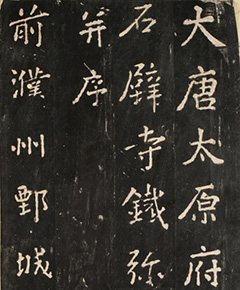 大唐太原府
石壁寺鐵弥
并序
前濮州鄄城